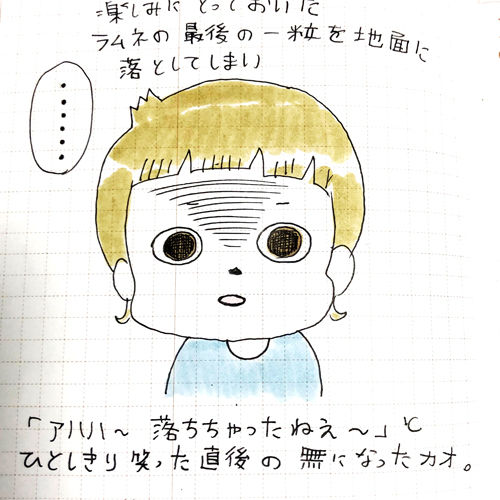 楽しみにとっておいた
ラムネの最後の一粒を地面に
落としてしまい
......
「アハハ〜 落ちちゃったねえ〜」と
ひとしきり笑った直後の無になったカオ。